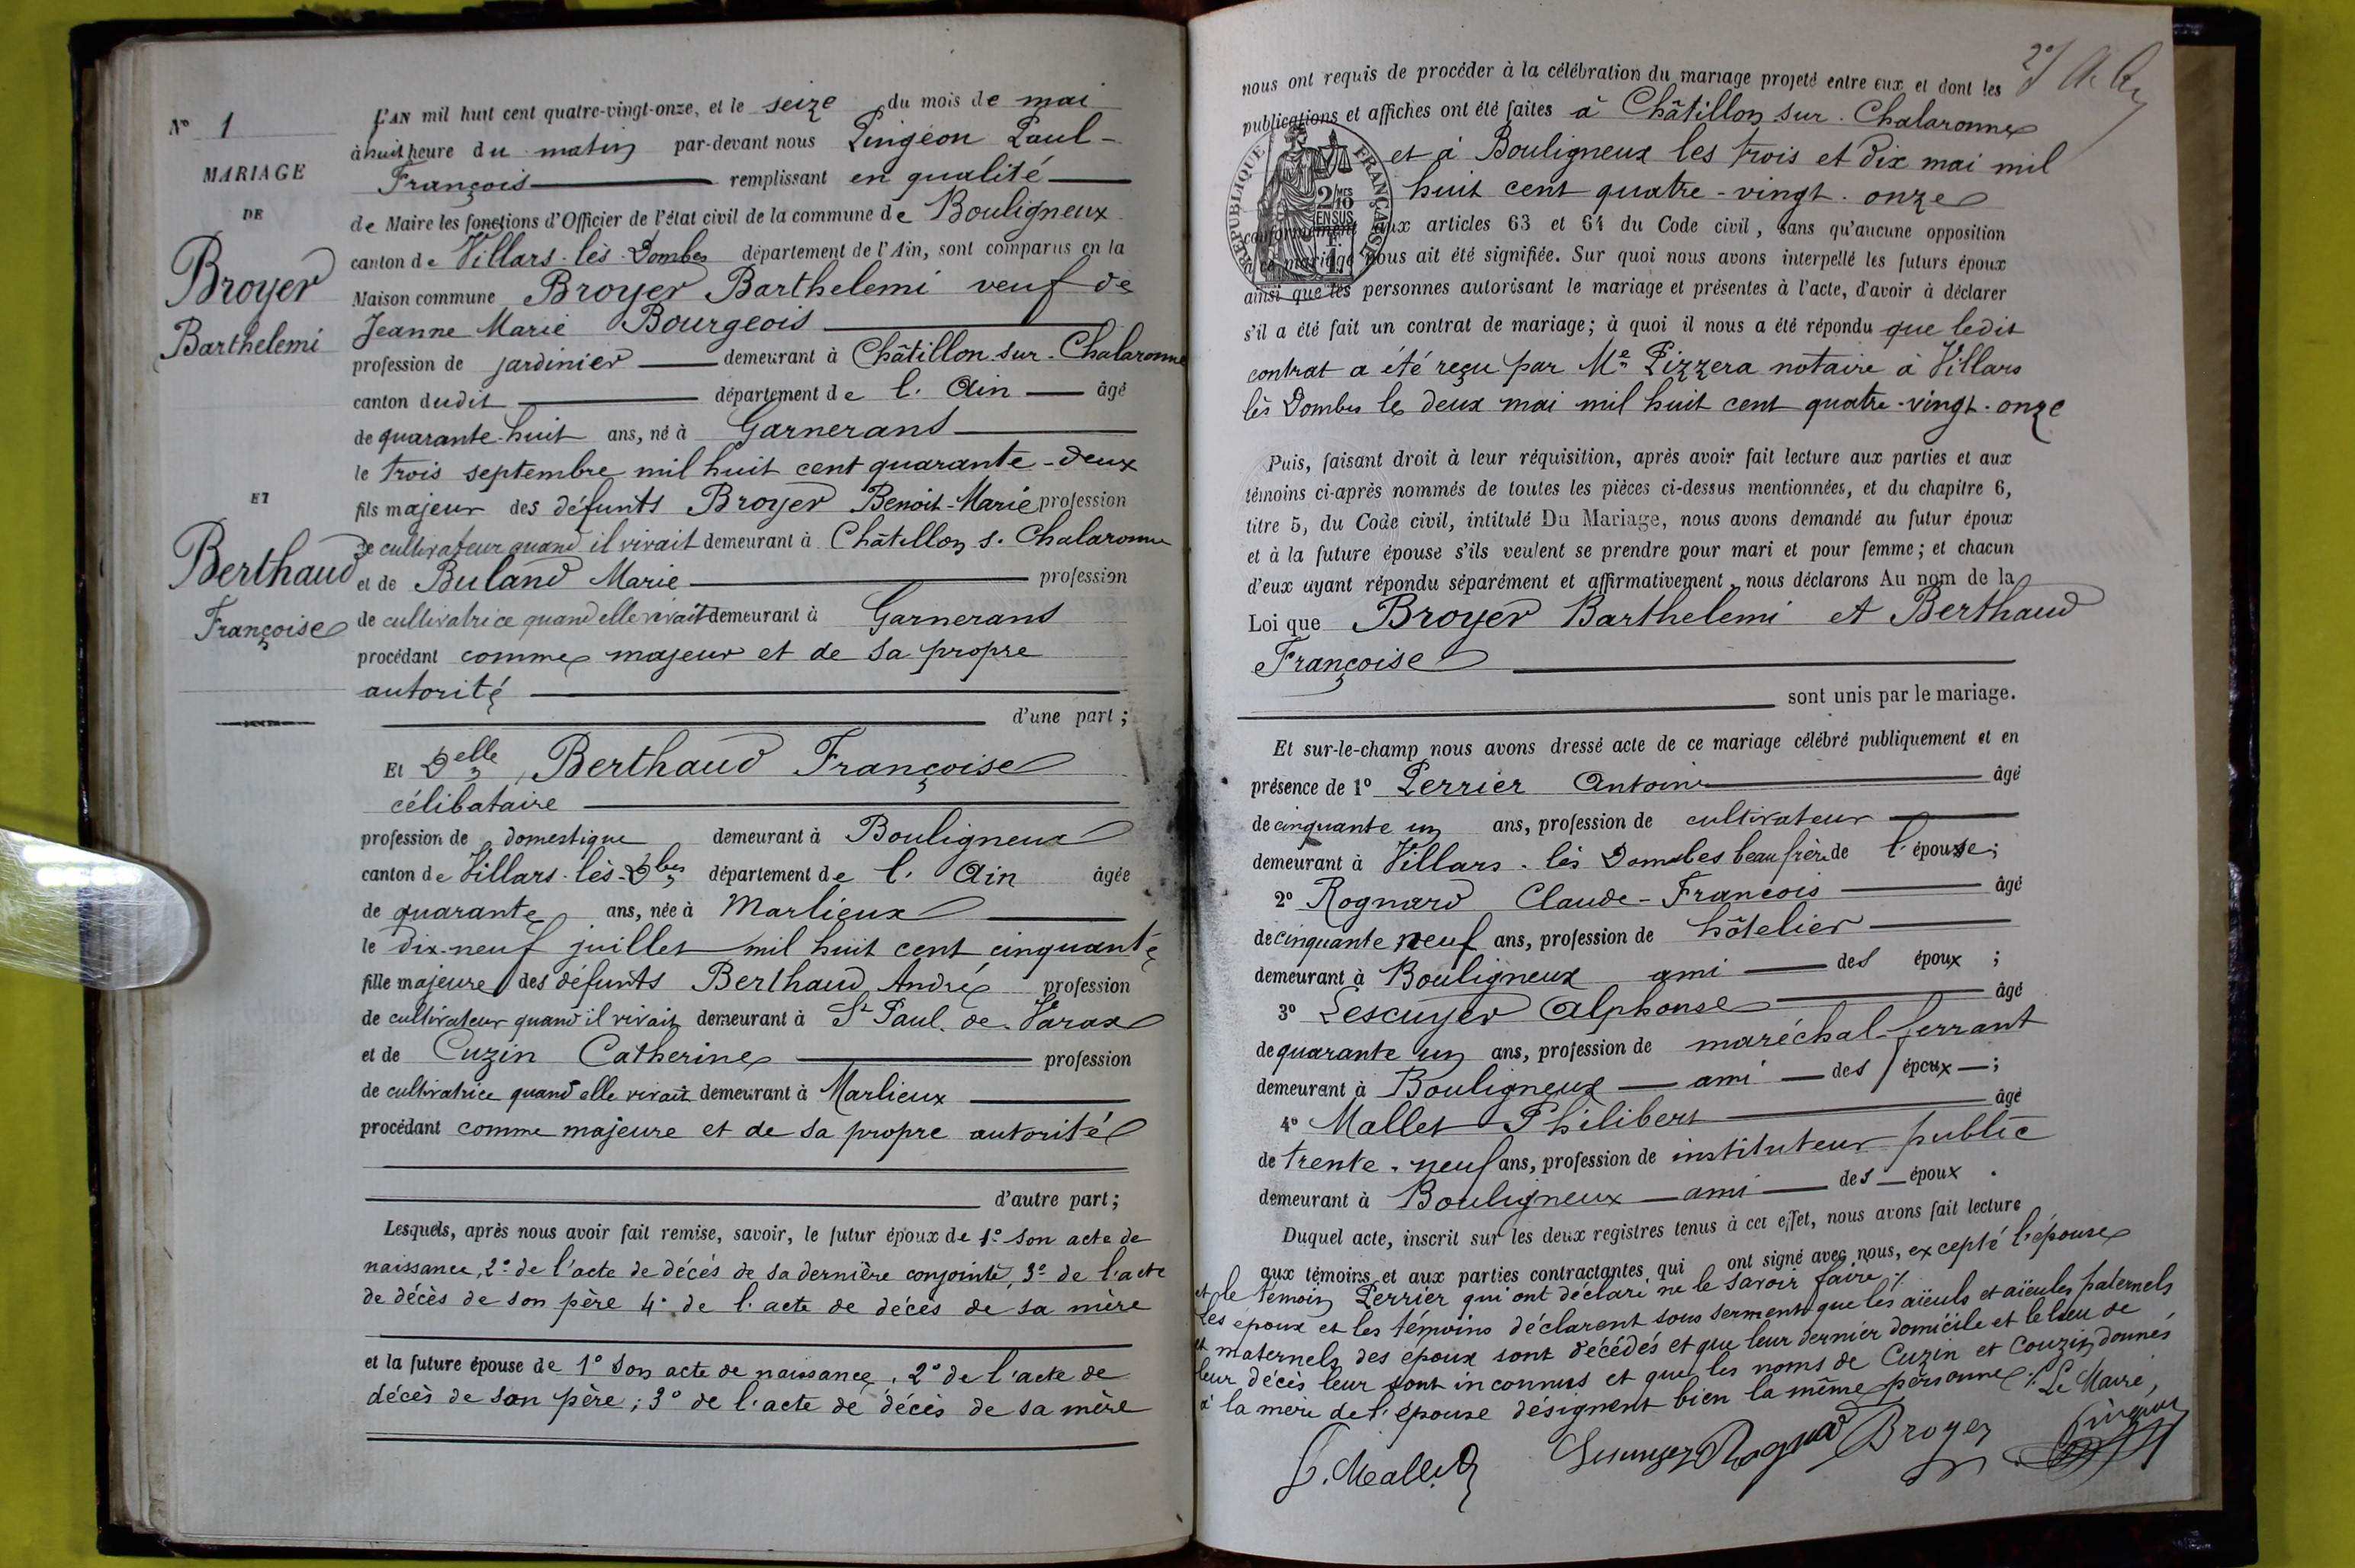 N° 1
MARIAGE
DE
Broyer
Barthelemi
ET
Berthaud
Françoise
L'AN mil huit cent quatre-vingt-onze, et le seize du mois de mai
à huit heure du matin par-devant nous Pingeon Paul-
François remplissant en qualité
de Maire les fonctions d'Officier de l'état civil de la commune de Bouligneux
canton de Villars-les-Dombes département de l'Ain, sont comparus en la
Maison commune Broyer Barthelemi veuf de
Jeanne Marie Bourgeois
profession de jardinier demeurant à Châtillon-sur-Chalaronne
canton dudit département de l'Ain âgé
de quarante-huit ans, né à Garnerans
le trois septembre mil huit cent quarante-deux
fils majeur des défunts Broyer Benoit-Marie profession
de cultivateur quand il vivait demeurant à Châtillon s. Chalaronne
et de Buland Marie profession
de cultivatrice quand elle vivait demeurant à Garnerans
procédant comme majeur et de sa propre
autorité
d'une part ;
Et Delle Berthaud Françoise
célibataire
profession de domestique demeurant à Bouligneux
canton de Villars-lès-Dbes département de l'Ain âgée
de quarante ans, née à Marlieux
le dix-neuf juillet mil huit cent cinquante
fille majeure des défunts Berthaud André profession
de cultivateur quand il vivait demeurant à St Paul-de-Varax
et de Cuzin Catherine profession
de cultivatrice quand elle vivait demeurant à Marlieux
procédant comme majeure et de sa propre autorité
d'autre part ;
Lesquels, après nous avoir fait remise, savoir, le futur époux de 1° son acte de
naissance, 2° de l'acte de décés de sa dernière conjointe, 3° de l'acte
de décès de son père 4° de l'acte de décès de sa mère
et la future épouse de 1° son acte de naissance, 2° de l'acte de
décès de son père ; 3° de l'acte de décès de sa mère
nous ont requis de procéder à la célébration du mariage projeté entre eux et dont les
publications et affiches ont été faites à Châtillon sur-Chalaronne
et à Bouligneux les trois et dix mai mil
huit cent quatre-vingt-onze
conformément aux articles 63 et 64 du Code civil, sans qu'aucune opposition
à ce mariage nous ait été signifiée. Sur quoi nous avons interpellé les futurs époux
ainsi que les personnes autorisant le mariage et présentes à l'acte, d'avoir à déclarer
s'il a été fait un contrat de mariage ; à quoi il nous a été répondu que ledit
contrat a été reçu par Me Pizzera notaire à Villars
lès Dombes le deux mai mil huit cent quatre-vingt-onze
Puis, faisant droit à leur réquisition, après avoir fait lecture aux parties et aux
témoins ci-après nommés de toutes les pièces ci-dessus mentionnées, et du chapitre 6,
titre 5, du Code civil, intitulé Du Mariage, nous avons demandé au futur époux
et à la future épouse s'ils veulent se prendre pour mari et pour femme ; et chacun
d'eux ayant répondu séparément et affirmativement, nous déclarons Au nom de la
Loi que Broyer Barthelemi et Berthaud
Françoise
sont unis par le mariage.
Et sur-le-champ nous avons dressé acte de ce mariage célébré publiquement et en
présence de 1° Perrier Antoine âgé
de cinquante un ans, profession de cultivateur
demeurant à Villars-lès Dombes beau frère de l'épouse ;
2° Rognard Claude-François âgé
de cinquante neuf ans, profession de hôtelier
demeurant à Bouligneux ami des époux ;
3° Lescuyer Alphonse âgé
de quarante un ans, profession de maréchal-ferrant
demeurant à Bouligneux ami des époux ;
4° Mallet Philibert âgé
de trente-neuf ans, profession de instituteur public
demeurant à Bouligneux ami des époux.
Duquel acte, inscrit sur les deux registres tenus à cet effet, nous avons fait lecture
aux témoins et aux parties contractantes qui ont signé avec nous, excepté l'épouse
et le témoin Perrier qui ont déclaré ne le savoir faire ./.
Les époux et les témoins déclarent sous serment que les aïeuls et aïeules paternels
et maternels des époux sont décédés et que leur dernier domicile et le lieu de
leur décès leur sont inconnus et que les noms de Cuzin et Couzin donnés
à la mère de l'épouse désignent bien la même personne ./. Le Maire,
P. Mallet Lescuyer Rognard Broyer Pingeon
RÉPUBLIQUE FRANÇAISE
2/10 MES
EN SUS